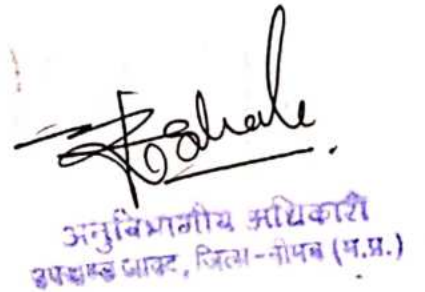 अनुविभागीय अधिकारी
उपखण्ड जावद, जिला-नीमच (म.प्र.)